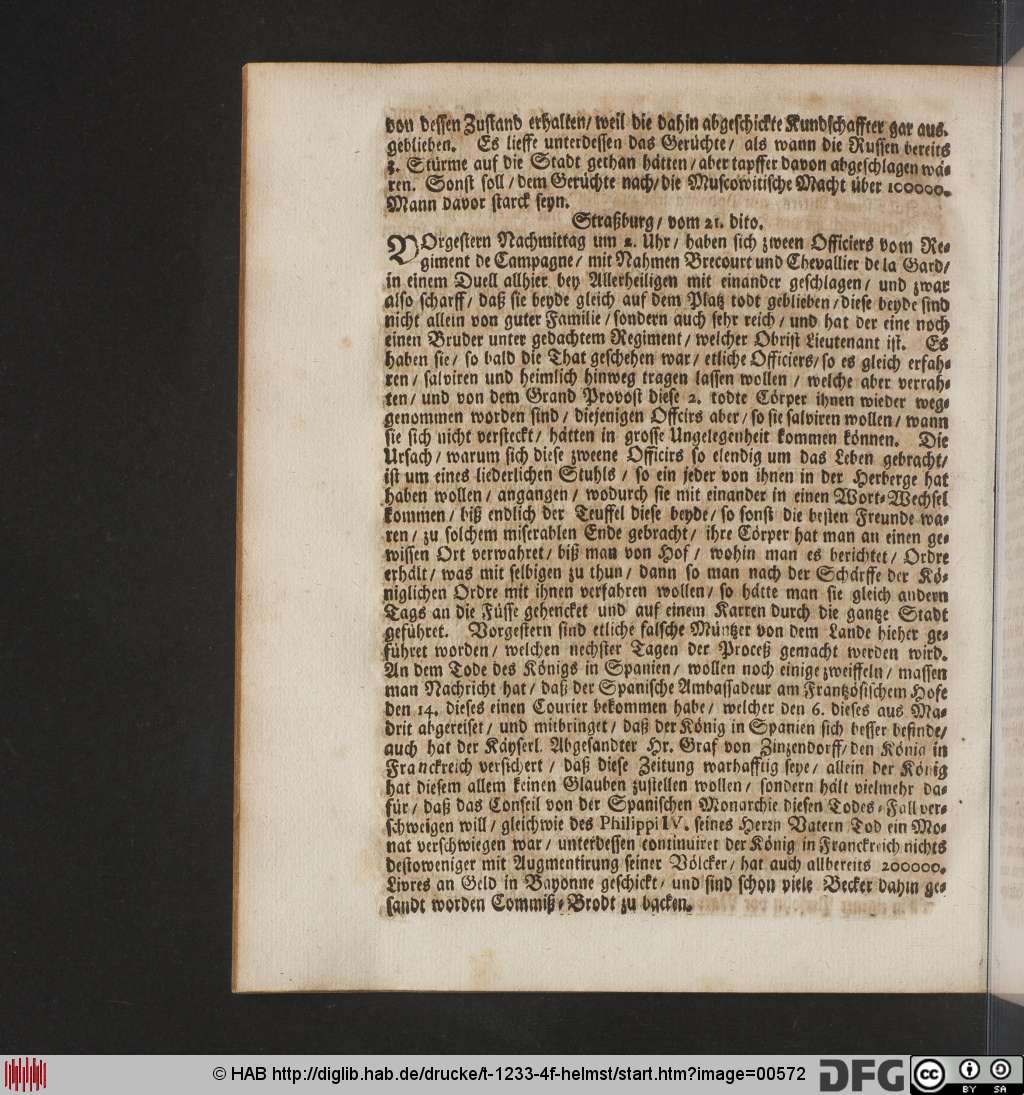 von dessen Zustand erhalten/ weil die dahin abgeschickte Kundschaffter gar aus-
geblieben. Es lieffe unterdessen das Gerüchte/ als wann die Russen bereits
3. Stürme auf die Stadt gethan hätten/ aber tapffer davon abgeschlagen wä-
ren. Sonst soll/ dem Gerüchte nach/ die Muscowitische Macht über 100000.
Mann davor starck seyn.
Straßburg/ vom 21. dito.
VOrgestern Nachmittag um 2. Uhr/ haben sich zween Officiers vom Re-
giment de Campagne/ mit Nahmen Brecourt und Chevallier de la Gard/
in einem Duell allhier bey Allerheiligen mit einander geschlagen/ und zwar
also scharff/ daß sie beyde gleich auf dem Platz todt geblieben/ diese beyde sind
nicht allein von guter Familie/ sondern auch sehr reich/ und hat der eine noch
einen Bruder unter gedachtem Regiment/ welcher Obrist Lieutenant ist. Es
haben sie/ so bald die That geschehen war/ etliche Officiers/ so es gleich erfah-
ren/ salviren und heimlich hinweg tragen lassen wollen/ welche aber verrah-
ten/ und von dem Grand Provost diese 2. todte Cörper ihnen wieder weg-
genommen worden sind/ diejenigen Offcirs aber/ so sie salviren wollen/ wann
sie sich nicht versteckt/ hätten in grosse Ungelegenheit kommen können. Die
Ursach/ warum sich diese zweene Officirs so elendig um das Leben gebracht/
ist um eines liederlichen Stuhls/ so ein jeder von ihnen in der Herberge hat
haben wollen/ angangen/ wodurch sie mit einander in einen Wort-Wechsel
kommen/ biß endlich der Teuffel diese beyde/ so sonst die besten Freunde wa-
ren/ zu solchem miserablen Ende gebracht/ ihre Cörper hat man an einen ge-
wissen Ort verwahret/ biß man von Hof/ wohin man es berichtet/ Ordre
erhält/ was mit selbigen zu thun/ dann so man nach der Schärffe der Kö-
niglichen Ordre mit ihnen verfahren wollen/ so hätte man sie gleich andern
Tags an die Füsse gehencket und auf einem Karren durch die gantze Stadt
geführet. Vorgestern sind etliche falsche Müntzer von dem Lande hieher ge-
führet worden/ welchen nechster Tagen der Proceß gemacht werden wird.
An dem Tode des Königs in Spanien/ wollen noch einige zweiffeln/ massen
man Nachricht hat/ daß der Spanische Ambassadeur am Frantzösischem Hofe
den 14. dieses einen Courier bekommen habe/ welcher den 6. dieses aus Ma-
drit abgereiset/ und mitbringet/ daß der König in Spanien sich besser befinde/
auch hat der Käyserl. Abgesandter Hr. Graf von Zinzendorff/ den König in
Franckreich versichert/ daß diese Zeitung warhafftig seye/ allein der König
hat diesem allem keinen Glauben zustellen wollen/ sondern hält vielmehr da-
für/ daß das Conseil von der Spanischen Monarchie diesen Todes-Fall ver-
schweigen will/ gleichwie des Philippi IV. seines Herrn Vatern Tod ein Mo-
nat verschwiegen war/ unterdessen continuiret der König in Franckreich nichts
destoweniger mit Augmentirung seiner Völcker/ hat auch allbereits 200000.
Livres an Geld in Bayonne geschickt/ und sind schon viele Becker dahin ge-
sandt worden Commiß-Brodt zu backen.
© HAB http://diglib.hab.de/drucke/t-1233-4f-helmst/start.htm?image=00572
DFG
cc BY SA